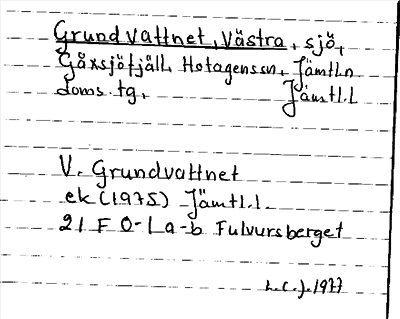 Grundvattnet, Västra, sjö,
Gåxsjöfjäll, Hotagens sn, Jämtl.n
doms. tg, Jämtl.l
V. Grundvattnet
ek (1975) Jämtl.l.
21 F 0-1 a-b Fulvursberget
L.C.J. 1977